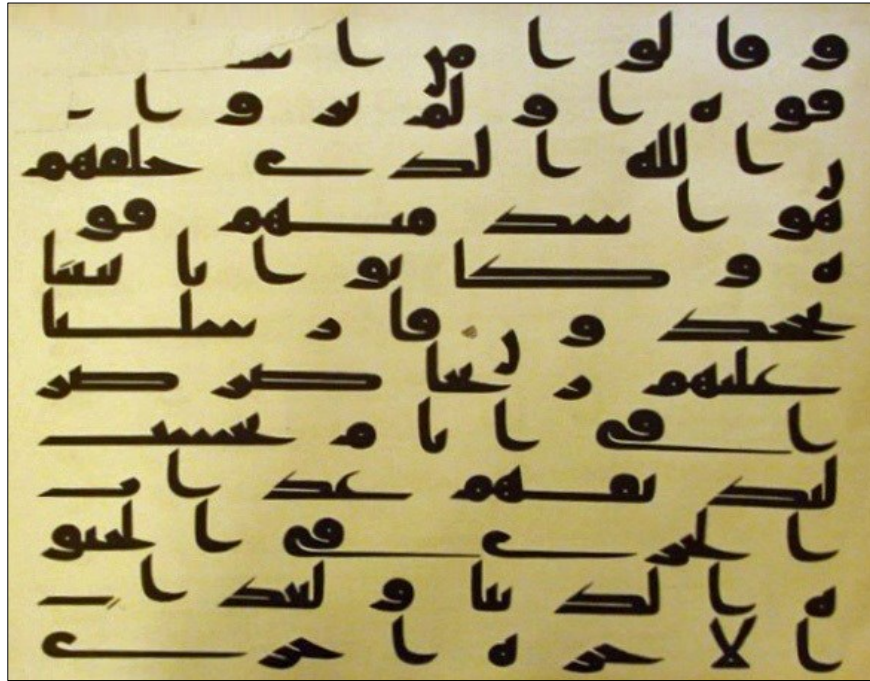 وقالوا من اشـ
قوه اولم يروا ا
ن الله الذي خلقهم
هو اشد منهم قو
ه وكانوا باييتنا
يجحدون فارسلنا
عليهم ريحا صرصر
ا في ايام نحست
لنذيقهم عذاب
الخزي في الحيو
ه الدنيا ولعذاب
الاخره اخزي